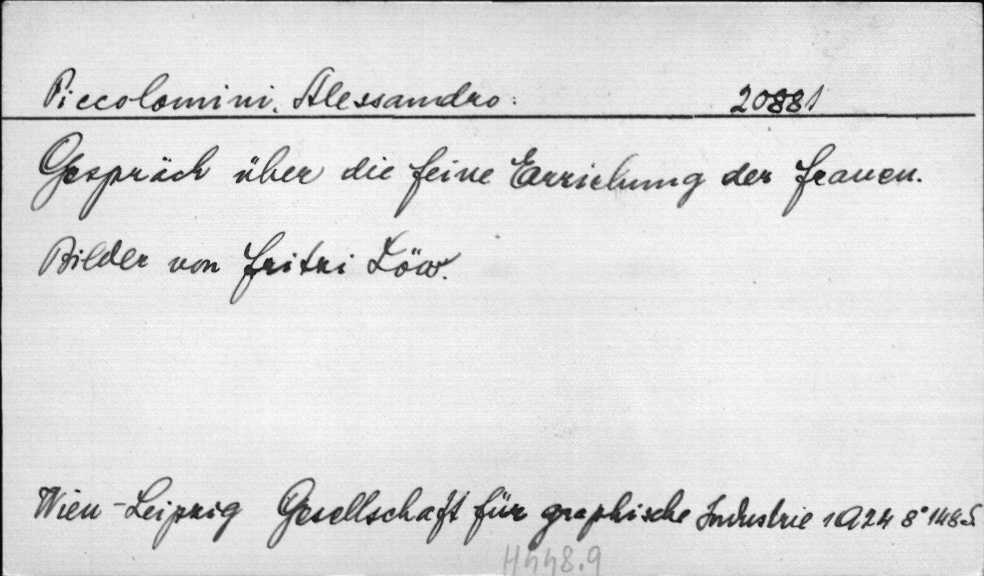 Piccolomini, Alessandro. 20881
Gespräch über die feine Erziehung der Frauen.
Bilder von Fritzi Löw.
Wien-Leipzig Gesellschaft für graphische Industrie 1924 8° 148 S.
H448.9